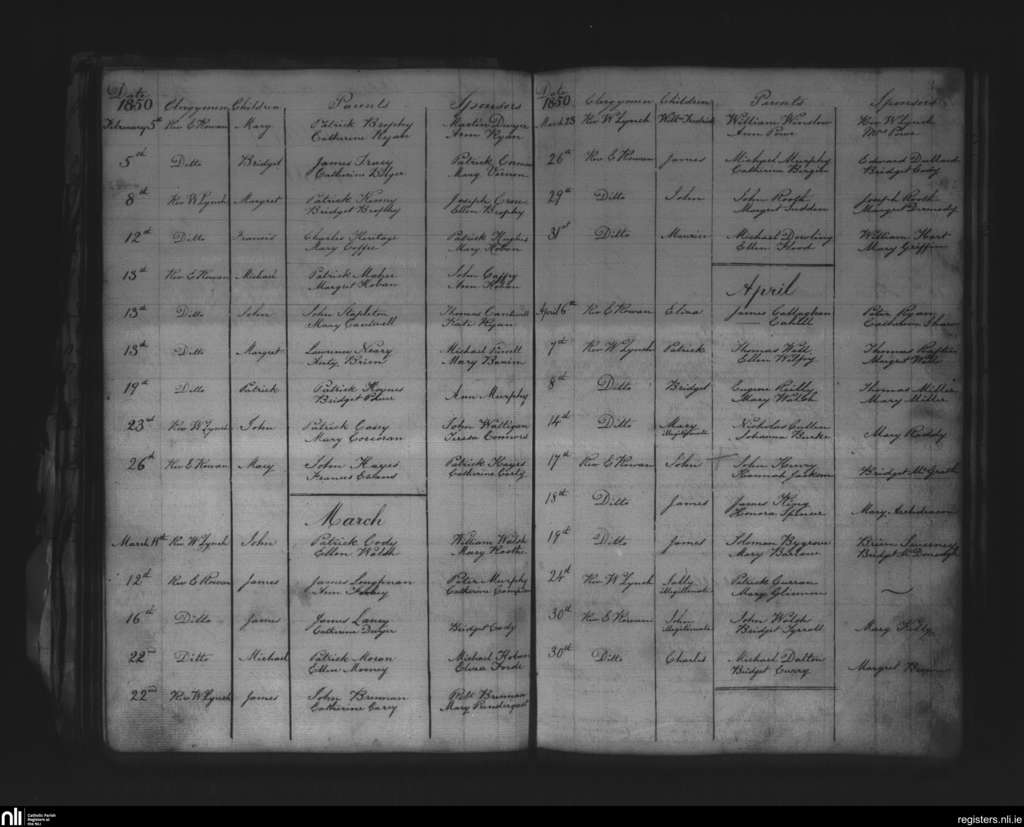 Date
1850 Clergymen Children Parents Sponsors
February 5th Rev E Rowan Mary Patrick Brophy Martin Dwyer
Catherine Ryan Ann Ryan
5th Ditto Bridget James Tracy Patrick
Catherine Mary
8th Rev W Lynch Margret Patrick Kenny Joseph
Bridget Brophy Ellen Brophy
12th Ditto Francis Charles Heritage Patrick Hughes
Mary Coffee Mary Hoban
13th Rev E Rowan Michael Patrick Maher John Caffry
Margret Hoban Ann Hoban
13th Ditto John John Stapleton Thomas Cantwell
Mary Cantwell Kate Ryan
13th Ditto Margret Lawrence Neary Michael
Mary
19th Ditto Patrick Patrick Haynes
Bridget Ann Murphy
23rd Rev W Lynch John Patrick Casey John
Mary Corcoran Teresa Connors
26th Rev E Rowan Mary John Hayes Patrick Hayes
Frances Catherine
March
March 11th Rev W Lynch John Patrick Cody William Walsh
Ellen Walsh Mary Rooth
12th Rev E Rowan James James Longfman Peter Murphy
Ann Catherine
16th Ditto James James Laney
Catherine Dwyer Bridget Cody
22nd Ditto Michael Patrick Moran Michael Hoban
Ellen Mooney Eliza Forde
22nd Rev W Lynch James John Brennan Patk Brennan
Catherine Carey Mary Pendergast
Date
1850 Clergymen Children Parents Sponsors
March 23 Rev W Lynch Willm Fredrick William Winslow Rev W Lynch
Ann Power Mrs Power
26th Rev E Rowan James Michael Murphy Edward Dullard
Catherine Bergin Bridget Cody
29th Ditto John John Rooth Joseph Rooth
Margret Margret Dermody
31st Ditto Maurice Michael Dowling William Hart
Ellen Flood Mary Griffin
April
April 6th Rev E Rowan Eliza James Callaghan Peter Ryan
Cahill Catherine
7th Rev W Lynch Patrick Thomas Wall Thomas
Ellen Margret Wall
8th Ditto Bridget Eugene Reilly Thomas
Mary Walsh Mary Miller
14th Ditto Mary Nicholas Cullen
Illegitimate Johanna Burke Mary Ruddy
17th Rev E Rowan John John Henry
Hannah Jackson Bridget McGrath
18th Ditto James James King
Honora Spencer Mary Archdeacon
19th Ditto James Solomon Bygrove Brien Sweeney
Mary Barlow Bridget McDonough
24th Rev W Lynch Sally Patrick Curran
Illegitimate Mary
30th Rev E Rowan John John Walsh
Illegitimate Bridget Tyrrell Mary Kelly
30th Ditto Charles Michael Dalton
Bridget Curry Margret
nli Catholic Parish
Registers at
the NLI
registers.nli.ie